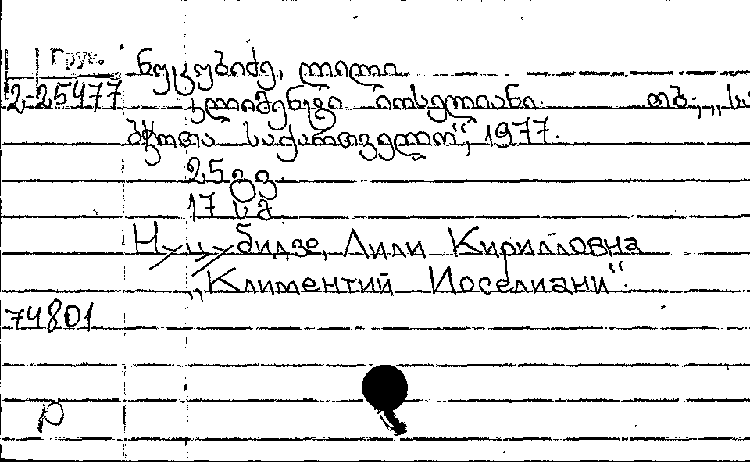 Груз. ნუცუბიძე, ლილი
2-25477 კლიმენტი იოსელიანი. თბ., „სა
ბჭოთა საქართველო“, 1977.
25 გვ.
17 სმ
Нуцубидзе, Лили Кирилловна
„Климентий Иоселиани“.
74801
р